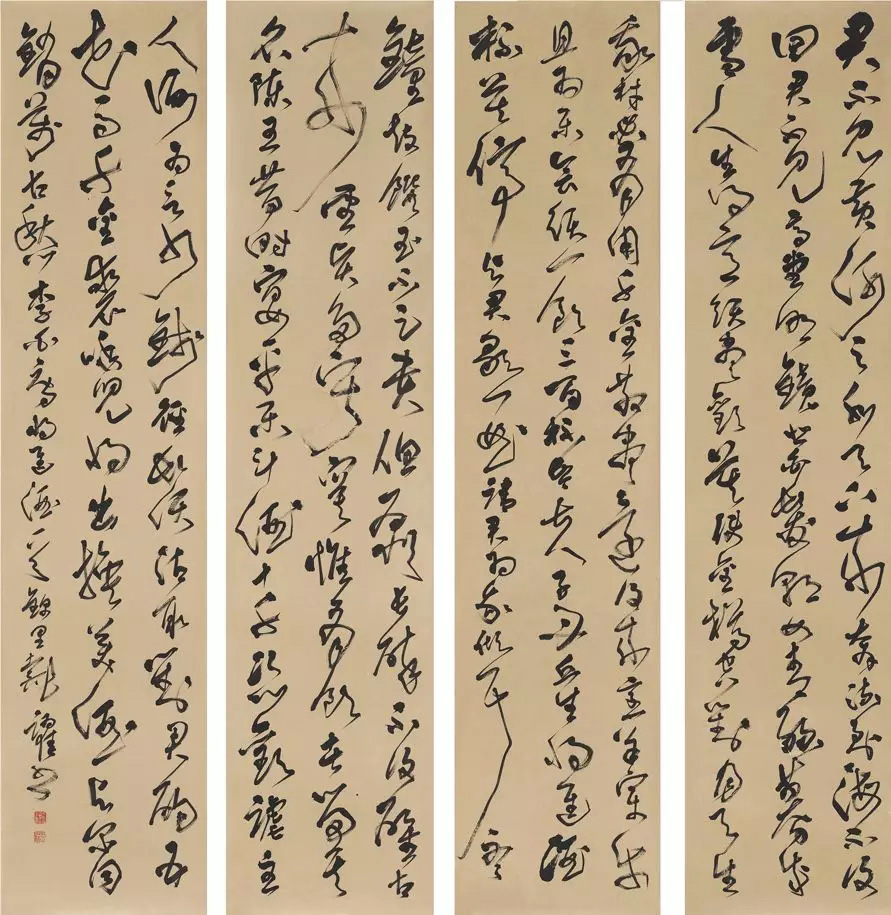 君不見黃河之水天上來奔流到海不復
回君不見高堂明鏡悲白髮朝如青絲暮成
雪人生得意須盡歡莫使金樽空對月天生
我材必有用千金散盡還復來烹羊宰牛
且為樂會須一飲三百杯岑夫子丹丘生將進酒
杯莫停與君歌一曲請君為我傾耳聽
鐘鼓饌玉不足貴但願長醉不復醒古
來聖賢皆寂寞惟有飲者留其
名陳王昔時宴平樂斗酒十千恣歡謔主
人何為言少錢徑須沽取對君酌五
花馬千金裘呼兒將出換美酒與爾同
銷萬古愁 李白詩將進酒一首 錦里戴 書